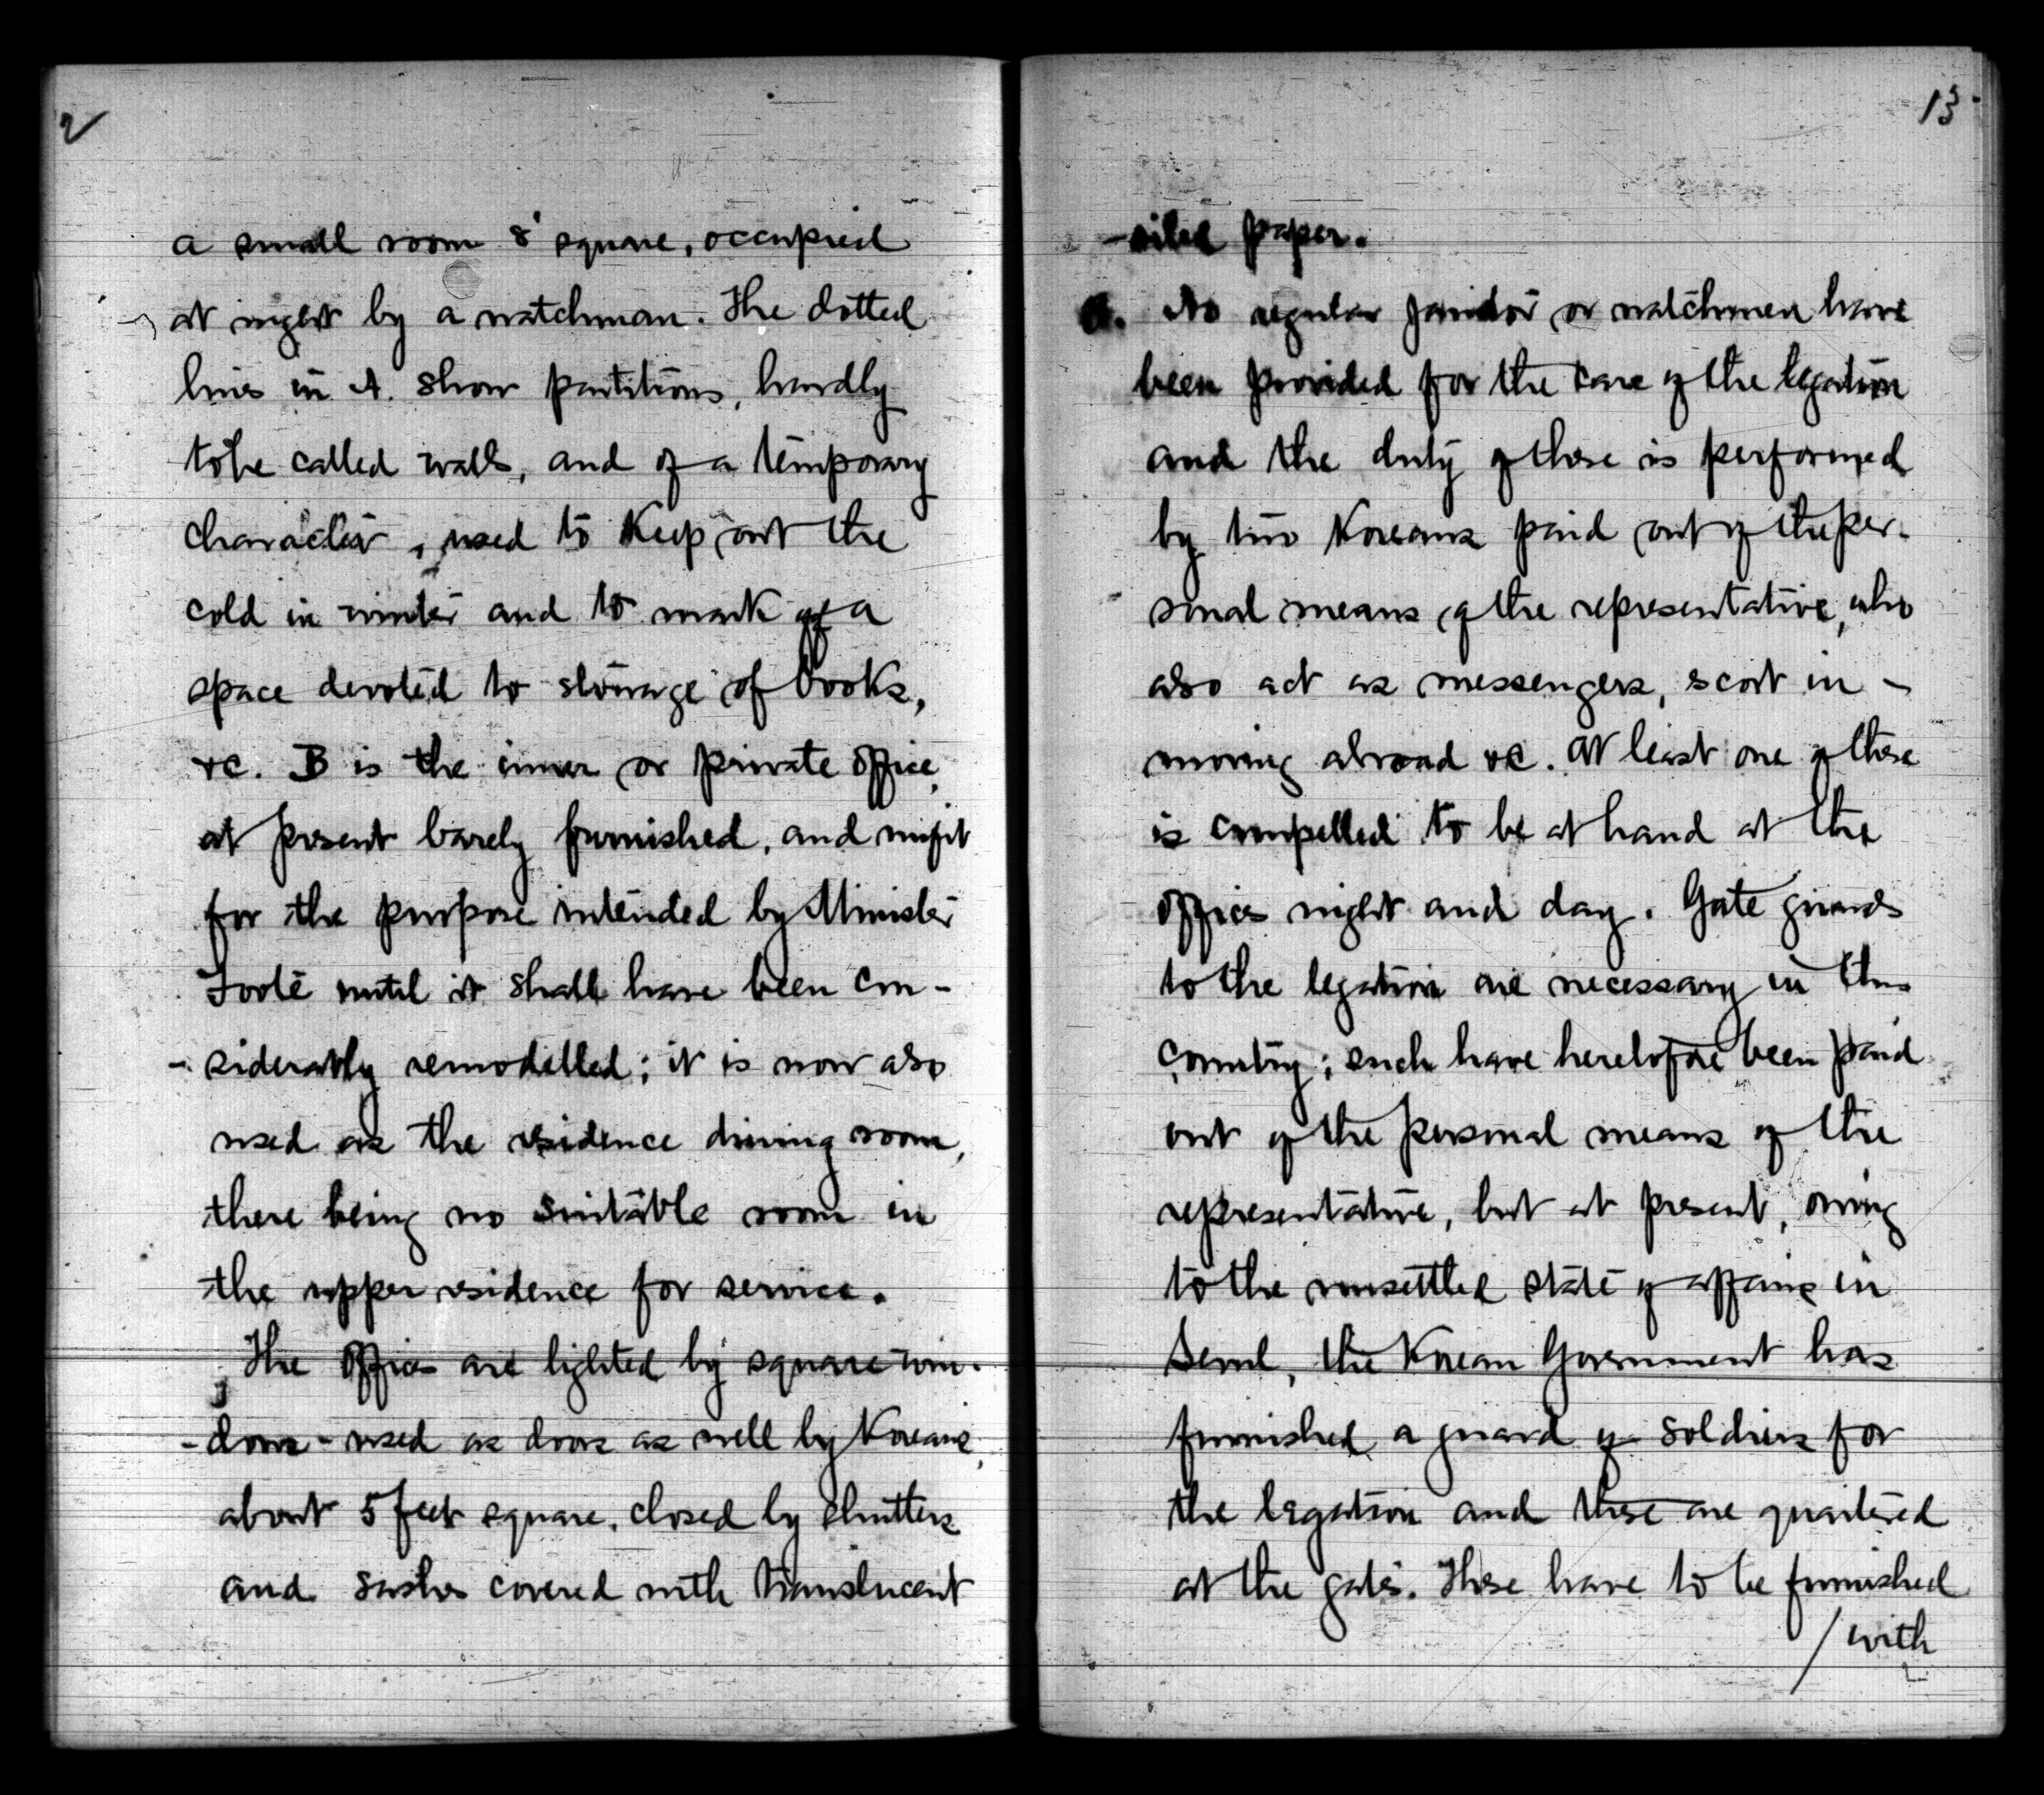 2
a small room 8' square, occupied
at night by a watchman. The dotted
lines in A. show partitions, hardly
to be called walls, and of a temporary
character, used to keep out the
cold in winter and to mark off a
space devoted to storage of books,
&c. B is the inner or private office,
at present barely furnished, and unfit
for the purpose intended by Minister
Foote until it shall have been con-
-siderably remodelled; it is now also
used as the residence dining room,
there being no suitable room in
the upper residence for service.
The offices are lighted by square win-
-dows - used as doors as well by Koreans,
about 5 feet square, closed by shutters
and sashes covered with translucent
13
paper.
No regular janitor or watchmen have
been provided for the care of the legation
and the duty of these is performed
by two Koreans paid out of the per-
sonal means of the representative, who
also act as messengers, escort in -
moving abroad &c. At least one of these
is compelled to be at hand at the
offices night and day. Gate guards
to the legation are necessary in this
country; such have heretofore been paid
out of the personal means of the
representative, but at present, owing
to the unsettled state of affairs in
Seoul, the Korean Government has
furnished a guard of soldiers for
the legation and these are quartered
at the gates. These have to be furnished
/ with